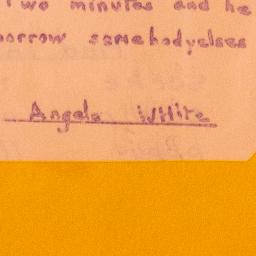 Two minutes and he
borrow somebodyelses
Angela White